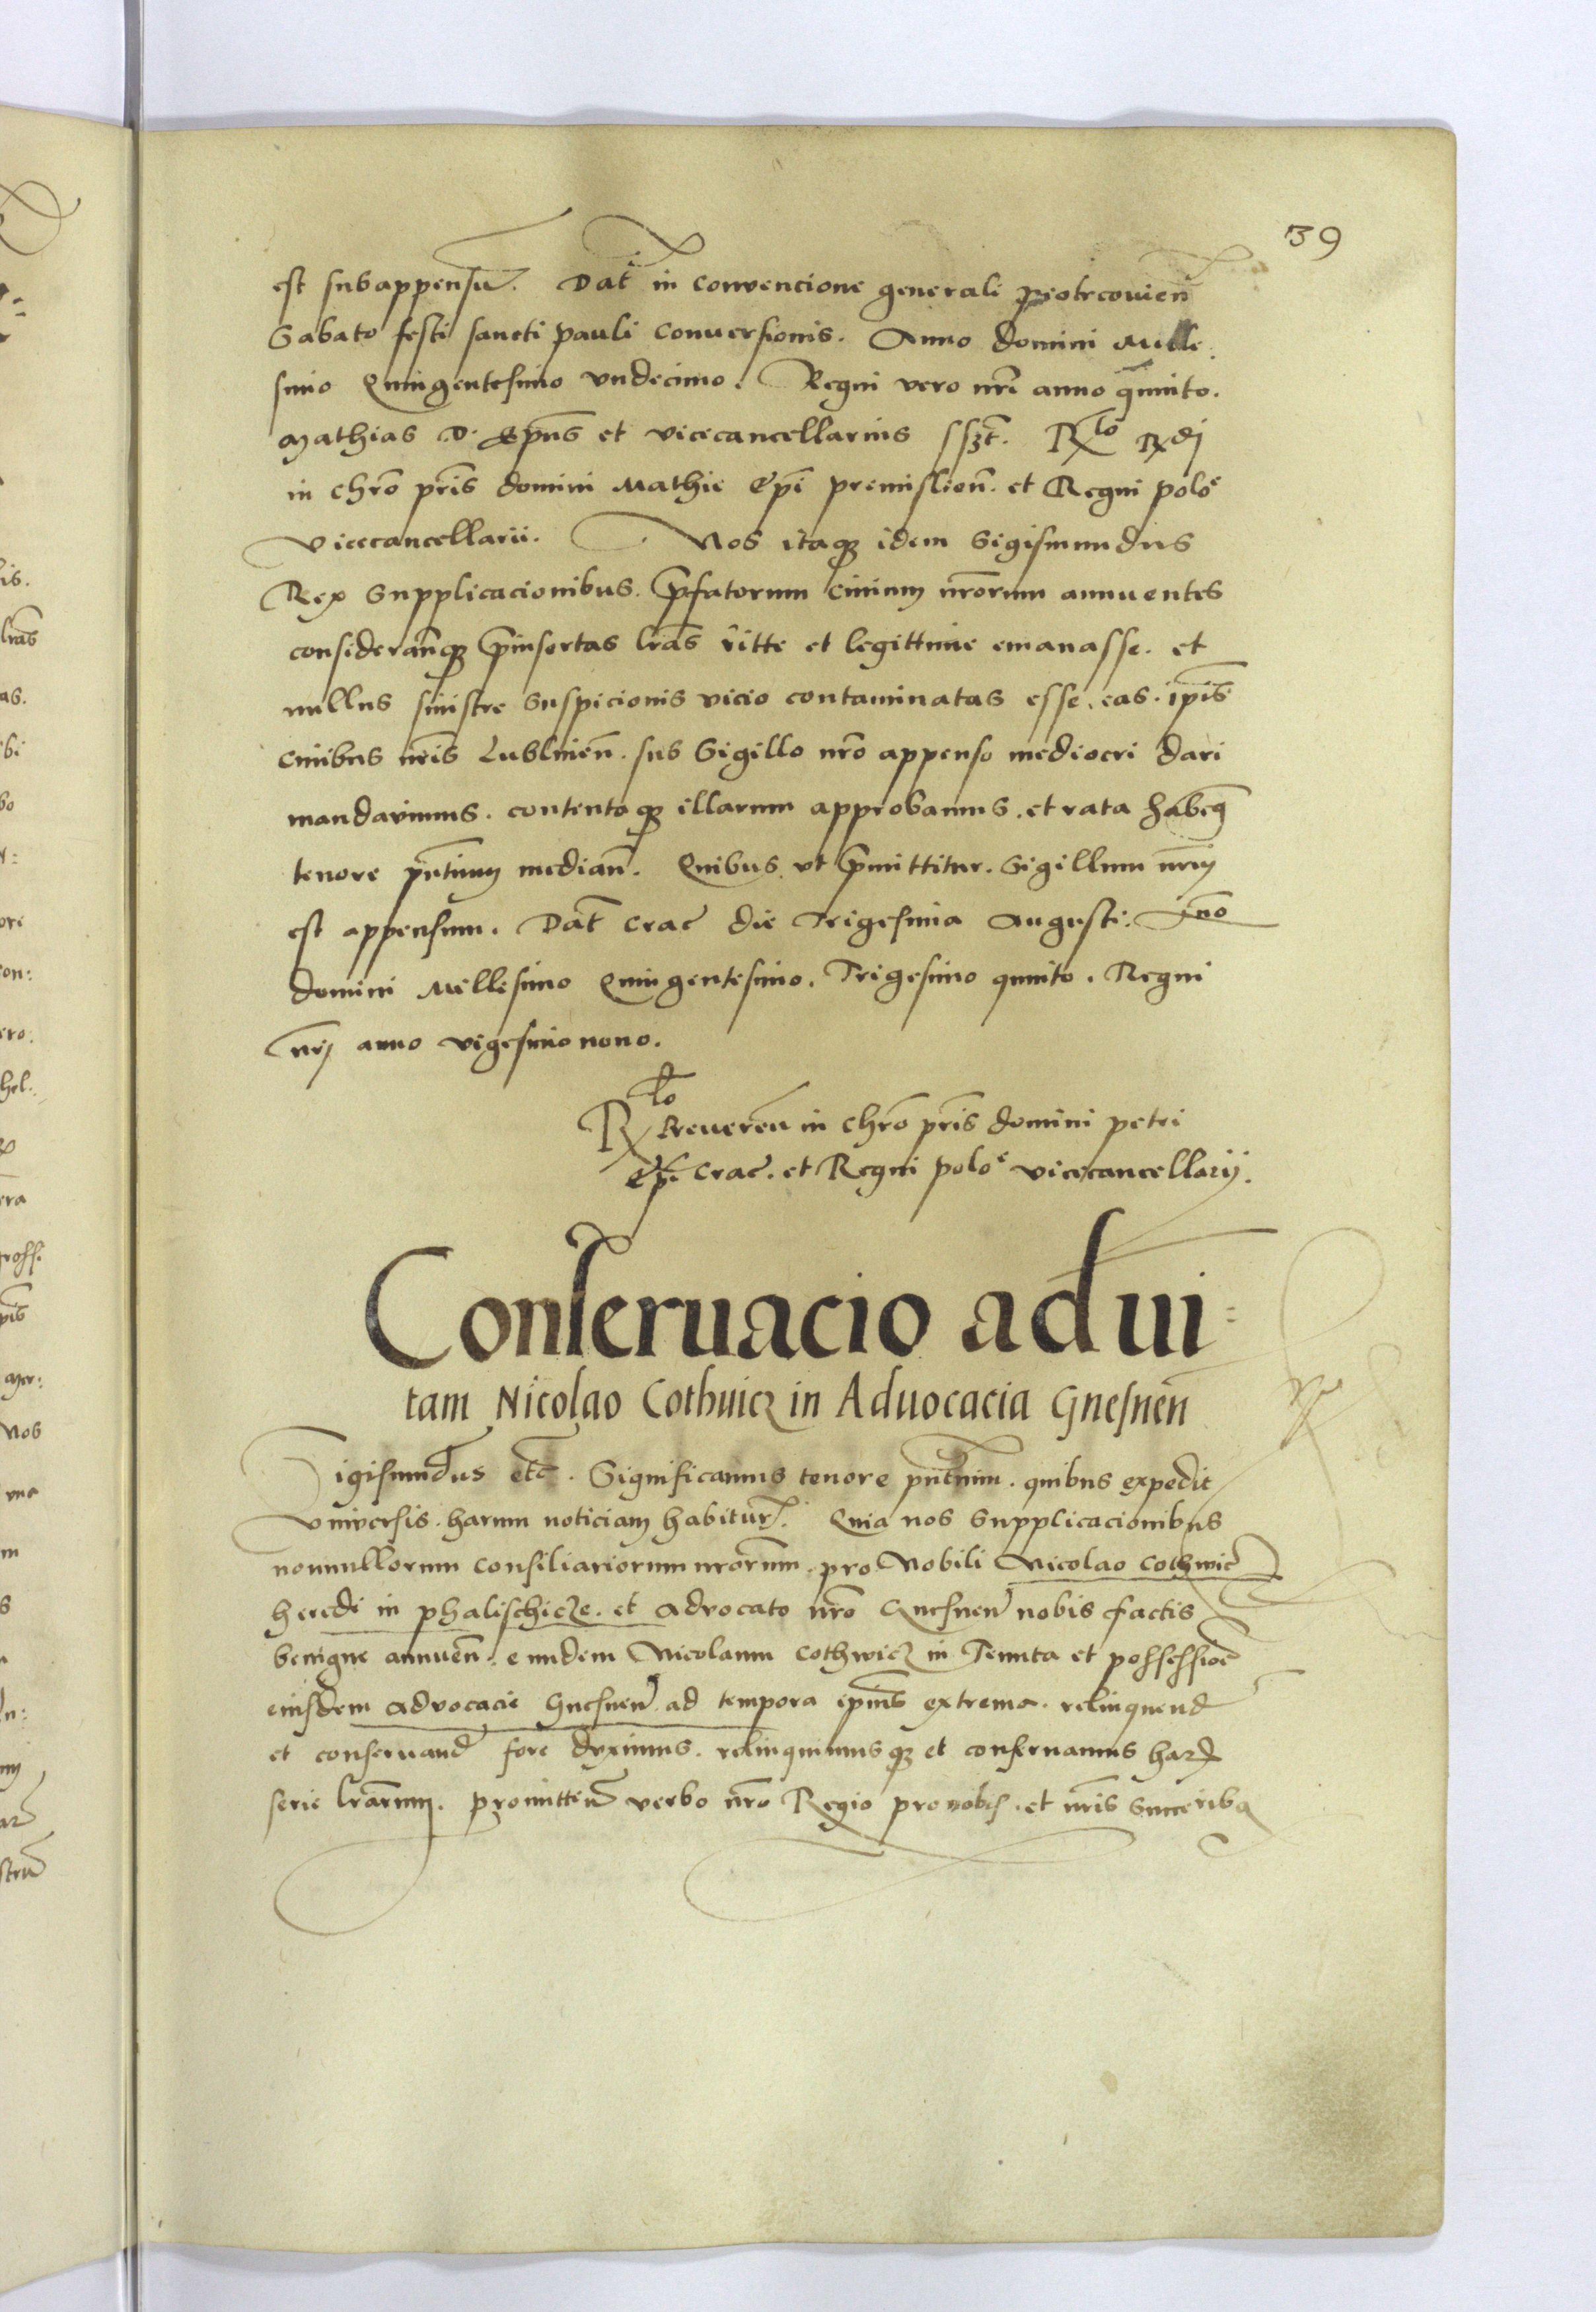 39
est subappensu͂. Dat͂ in conventione generali piotrcovien͂
Sabato festi sancti pauli conversionis. Anno domini Mille-
simo Quingentesimo vndecimo. Regni vero nr͂i anno quinto.
Mathias D. Ep͂us et vicecancellarius sszt. R͂lo Rdi
in chr͂o pr͂is domini Mathie Ep͂i premislien͂. et Regni polo͂e
vicecancellarii. Nos itaq3 idem Sigismundus
Rex Supplicacionibus. p͂fatorum ciuium nr͂orum annuentes
consideran͂q3 p͂insertas lr͂as ritte et legittime emanasse. et
nullus sinistre suspicionis vicio contaminatas esse. eas. ip͂is
ciuibus nr͂is Lublinen͂. sub Sigillo nr͂o appenso mediocri dari
mandavimus. contentaq3 illarum approbamus. et rata habem͂q
tenore pn͂tium median͂. Quibus vt p͂mittitur. Sigillum nr͂m
est appensum. Dat͂ crac͂ die Trigesima Augusti: An͂no
domini Millesimo Quingentesimo. Trigesimo quinto. Regni
nr͂i anno vigesimo nono.
R͂lo Reueren͂ in chr͂o pr͂is domini petri
Ep͂i. crac͂. et Regni polo͂e vicecancellarij.
Conseruacio ad ui=
tam Nicolao Cothvicz in Aduocacia Gnesnen͂
Sigismundus etc͂. Significamus tenore pn͂tium. quibus expedit
vniversis. harum noticiam habitur͂. Quia nos Supplicacionibus
nonnullorum consiliariorum nr͂orum. pro Nobili Nicolao cothwicz
heredi in phalischicze. et advocato nr͂o Gnesnen͂ nobis factis
benigne annuen͂. eundem Nicolaum cothwicz in Tenuta et possessio͂e
eiusdem advocacie Gnesnen͂. ad tempora ip͂ius extrema. relinquend͂
et conseruand͂ fore duximus. relinquimusq3 et conseruamus har͂
serie lr͂arum. promitten͂ verbo nr͂o Regio pro nobis. et nr͂is Succ͂ribq